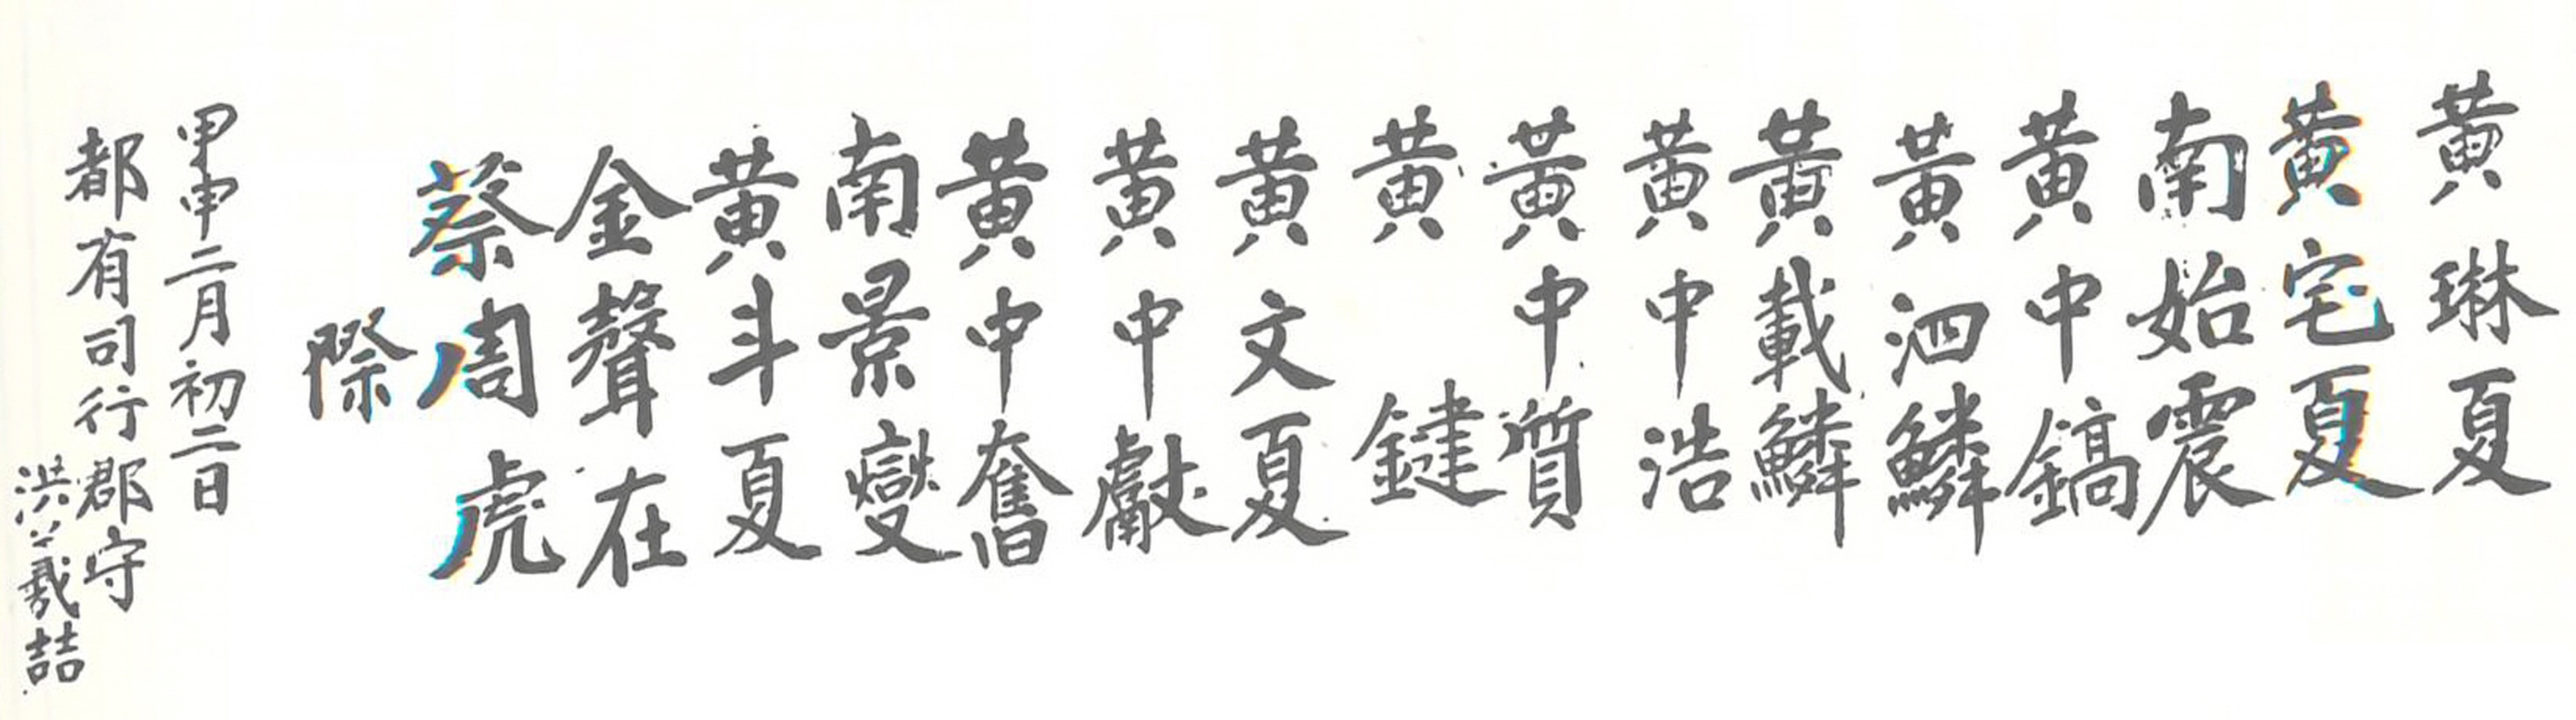 黃琳夏
黃宅夏
南始震
黃中鎬
黃泗鱗
黃載鱗
黃中浩
黃中質
黃鍵
黃文夏
黃中獻
黃中奮
南景燮
黃斗夏
金聲在
蔡周虎
際
甲申二月初二日
都有司行郡守
洪義喆